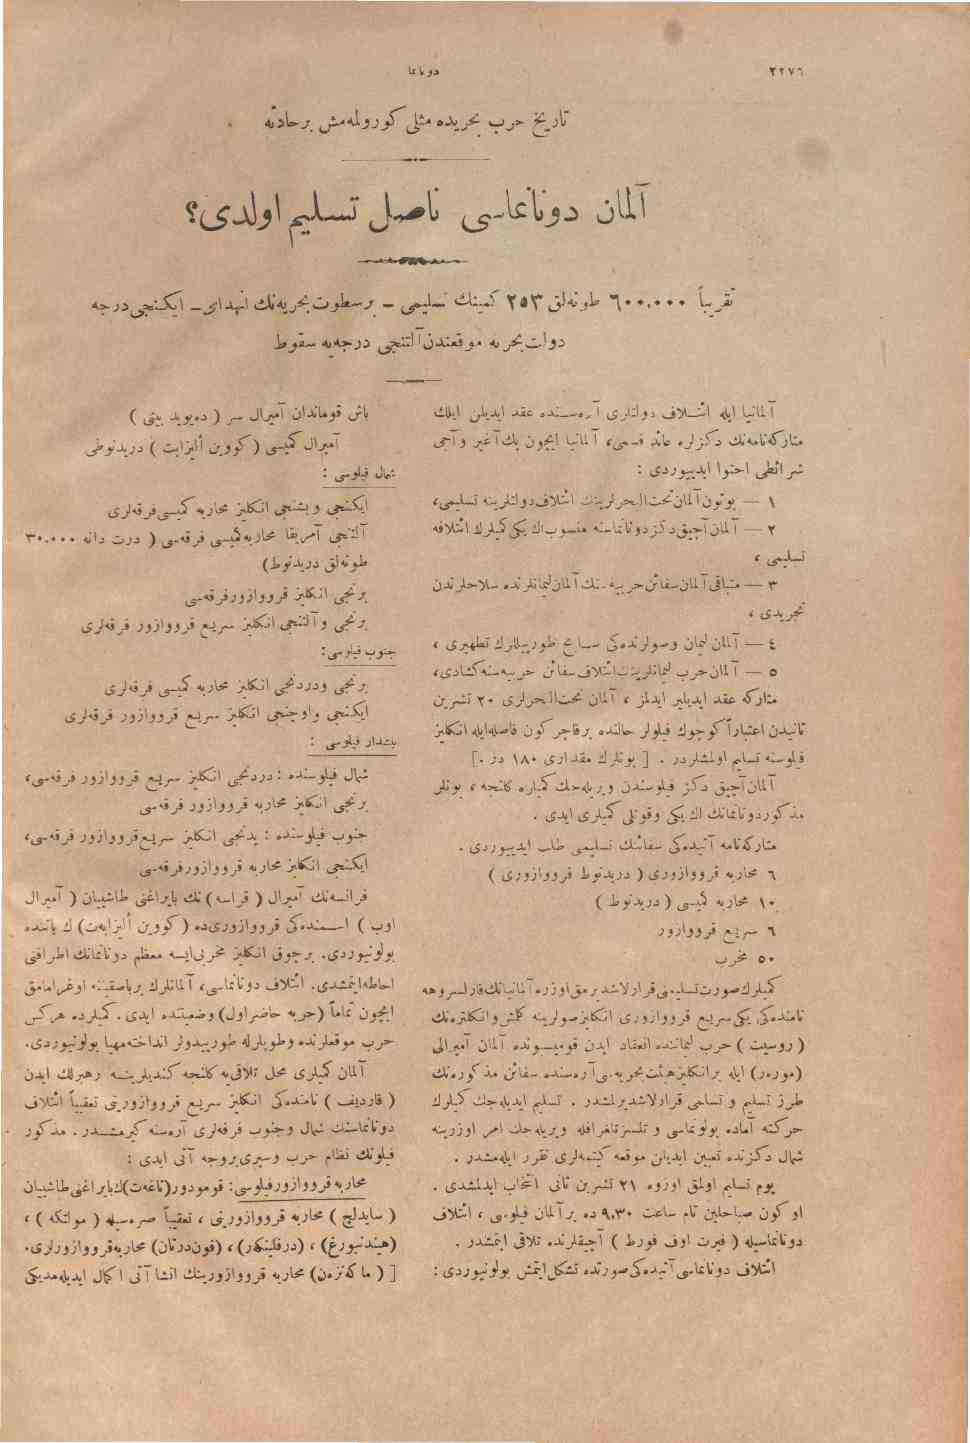 ٢٢٧٦
دونانما
تاريخ حرب بحريده مثلى كورولمه‌مش برحادثه
آلمان دونانماسى ناصل تسليم اولدى؟
تقريباً ٦٠٠.٠٠٠ طونه‌لق ٢٥٣ كمينك تسليمى – برسطوت بحريه‌نك انهدامى – ايكنجى درجه
دولت بحريه موقعندن آلتنجى درجه‌يه سقوط
آلمانيا ايله ائتلاف دولتلرى آره‌سنده عقد ايديلن ايلك
متاركه‌نامه‌نك دكزلره عائد قسمى، آلمانيا ايچون پك آغير و آجى
شرائطى احتوا ايدييوردى :
١ — بوتون آلمان تحت‌البحرلرينك ائتلاف دولتلرينه تسليمى،
٢ — آلمان آچيق دكز دونانماسنه منسوب اك يكى كميلرك ائتلافه
تسليمى ،
٣ — متباقى آلمان سفائن حربيه‌سنك آلمان ليمانلرنده سلاحلرندن
تجريدى ،
٤ — آلمان ليمان وصولرنده‌كى سابح طورپيللرك تطهيرى ،
٥ — آلمان حرب ليمانلرينك ائتلاف سفائن حربيه‌سنه كشادى،
متاركه عقد ايديلير ايدلمز ، آلمان تحت‌البحرلرى ٢٠ تشرين
ثانيدن اعتباراً كوچوك فيلولر حالنده برقاچر كون فاصله‌ايله انكليز
فيلوسنه تسليم اولمشلردر . [ بونلرك مقدارى ١٨٠ در .]
آلمان آچيق دكز فيلوسندن ويريله‌جك كميلره كلنجه ، بونلر
مذكور دونانمانك اك يكى وقوتلى كميلرى ايدى .
متاركه‌نامه آتيده‌كى سفائنك تسليمى طلب ايدييوردى .
٦ محاربه قرووازورى ( دريدنوط قرووازورى )
١٠ محاربه كميسى ( دريدنوط )
٦ سريع قرووازور
٥٠ مخرب
كميلرك صورت تسليمنى قرارلاشديرمق اوزره آلمانيانك قارلسروهه
نامنده‌كى يكى سريع قرووازورى انكليز صولرينه كلمش وانكلتره‌نك
( روسيت ) حرب ليماننده انعقاد ايدن قوميسيونده آلمان آميرالى
(موره‌ر) ايله برانكليز هيئت بحريه‌سى آره‌سنده سفائن مذكوره‌نك
طرز تسليم و تسلمى قرارلاشديرلمشدر . تسليم ايديله‌جك كميلرك
حركته آماده بولونماسى و تلسز تلغرافله ويريله‌جك امر اوزرينه
شمال دكزنده تعيين ايديلن موقعه كيتمه‌لرى تقرر ايله‌مشدر .
يوم تسليم اولمق اوزره ٢١ تشرين ثانى انتخاب ايدلمشدى .
او كون صباحلين تام ساعت ٩,٣٠ ده بر آلمان فيلوسى ، ائتلاف
دونانماسيله ( فيرت اوف فورط ) آچيقلرنده تلاقى ايتمشدر .
ائتلاف دونانماسى آتيده‌كى صورتده تشكل ايتمش بولونيوردى :
باش قوماندان آميرال سر ( ده‌يويد بيتى )
آميرال كميسى (كووين أليزابت ) دريدنوطى
شمال فيلوسى :
ايكنجى و بشنجى انكليز محاربه كميسى فرقه‌لرى
آلتنجى آمريقا محاربه كميسى فرقه‌سى ( درت دانه ٣٠.٠٠٠
طونه‌لق دريدنوط)
برنجى انكليز قرووازور فرقه‌سى
برنجى و آلتنجى انكليز سريع قرووازور فرقه‌لرى
جنوب فيلوسى:
برنجى ودردنجى انكليز محاربه كميسى فرقه‌لرى
ايكنجى واوچنجى انكليز سريع قرووازور فرقه‌لرى
پيشدار فيلوسى :
شمال فيلوسنده : دردنجى انكليز سريع قرووازور فرقه‌سى،
برنجى انكليز محاربه قرووازور فرقه‌سى
جنوب فيلوسنده : يدنجى انكليز سريع قرووازور فرقه‌سى،
ايكنجى انكليز محاربه قرووازور فرقه‌سى
فرانسه‌نك آميرال ( قراسه ) نك بايراغنى طاشييان ( آميرال
اوب ) اسمنده‌كى قرووازورى‌ده (كووين أليزابه‌ت) ك ياننده
بولونيوردى. برچوق انكليز مخربى‌ايسه معظم دونانمانك اطرافنى
احاطه ايتمشدى. ائتلاف دونانماسى، آلمانلرك برباصقيننه اوغرامامق
ايچون تماماً (حربه حاضر اول) وضعيتنده ايدى. كميلرده هركس
حرب موقعلرنده وطوپلرله طورپيدولر انداخته مهيا بولونيوردى.
آلمان كميلرى محل تلاقى‌يه كلنجه كنديلرينه رهبرلك ايدن
( قارديف ) نامنده‌كى انكليز سريع قرووازورينى تعقيباً ائتلاف
دونانماسنك شمال وجنوب فرقه‌لرى آره‌سنه كيرمشدر. مذكور
فيلونك نظام حرب وسيرى بروجه آتى ايدى :
محاربه قرووازور فيلوسى: قومودور(تاغه‌ت)ك بايراغنى طاشييان
( سايدليچ ) محاربه قرووازورينى ، تعقيباً صره‌سيله ( مولتكه ) ،
(هيندنبورغ) ، (درفلينكر) ، (فون‌درتان) محاربه قرووازورلرى.
[ ( ماكه‌نزه‌ن) محاربه قرووازورينك انشا آتى اكمال ايديله‌مديكى